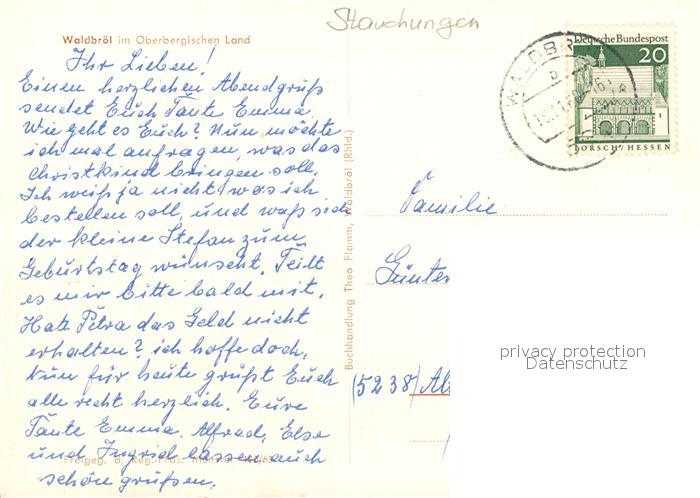 Stauchungen
Waldbröl im Oberbergischen Land
Ihr Lieben!
Einen herzlichen Abendgruß
sendet Euch Tante Emma.
Wie geht es Euch? Nun möchte
ich mal anfragen, was das
Christkind bringen soll.
Ich weiß ja nicht was ich
bestellen soll, und waß sich
der kleine Stefan zum
Geburtstag wünscht. Teilt
es mir bitte bald mit.
Hat Petra das Geld nicht
erhalten? ich hoffe doch.
Nun für heute grüßt Euch
alle recht herzlich. Eure
Tante Emma. Alfred, Else
und Ingrid lassen auch
schön grüßen.
Freigeg. d. Reg. Präs. Münster
Buchhandlung Theo Flamm, Waldbröl (Rhld.)
WALDBRÖL
Deutsche Bundespost
20
LORSCH/HESSEN
Familie
Günter
(5238)
privacy protection
Datenschutz